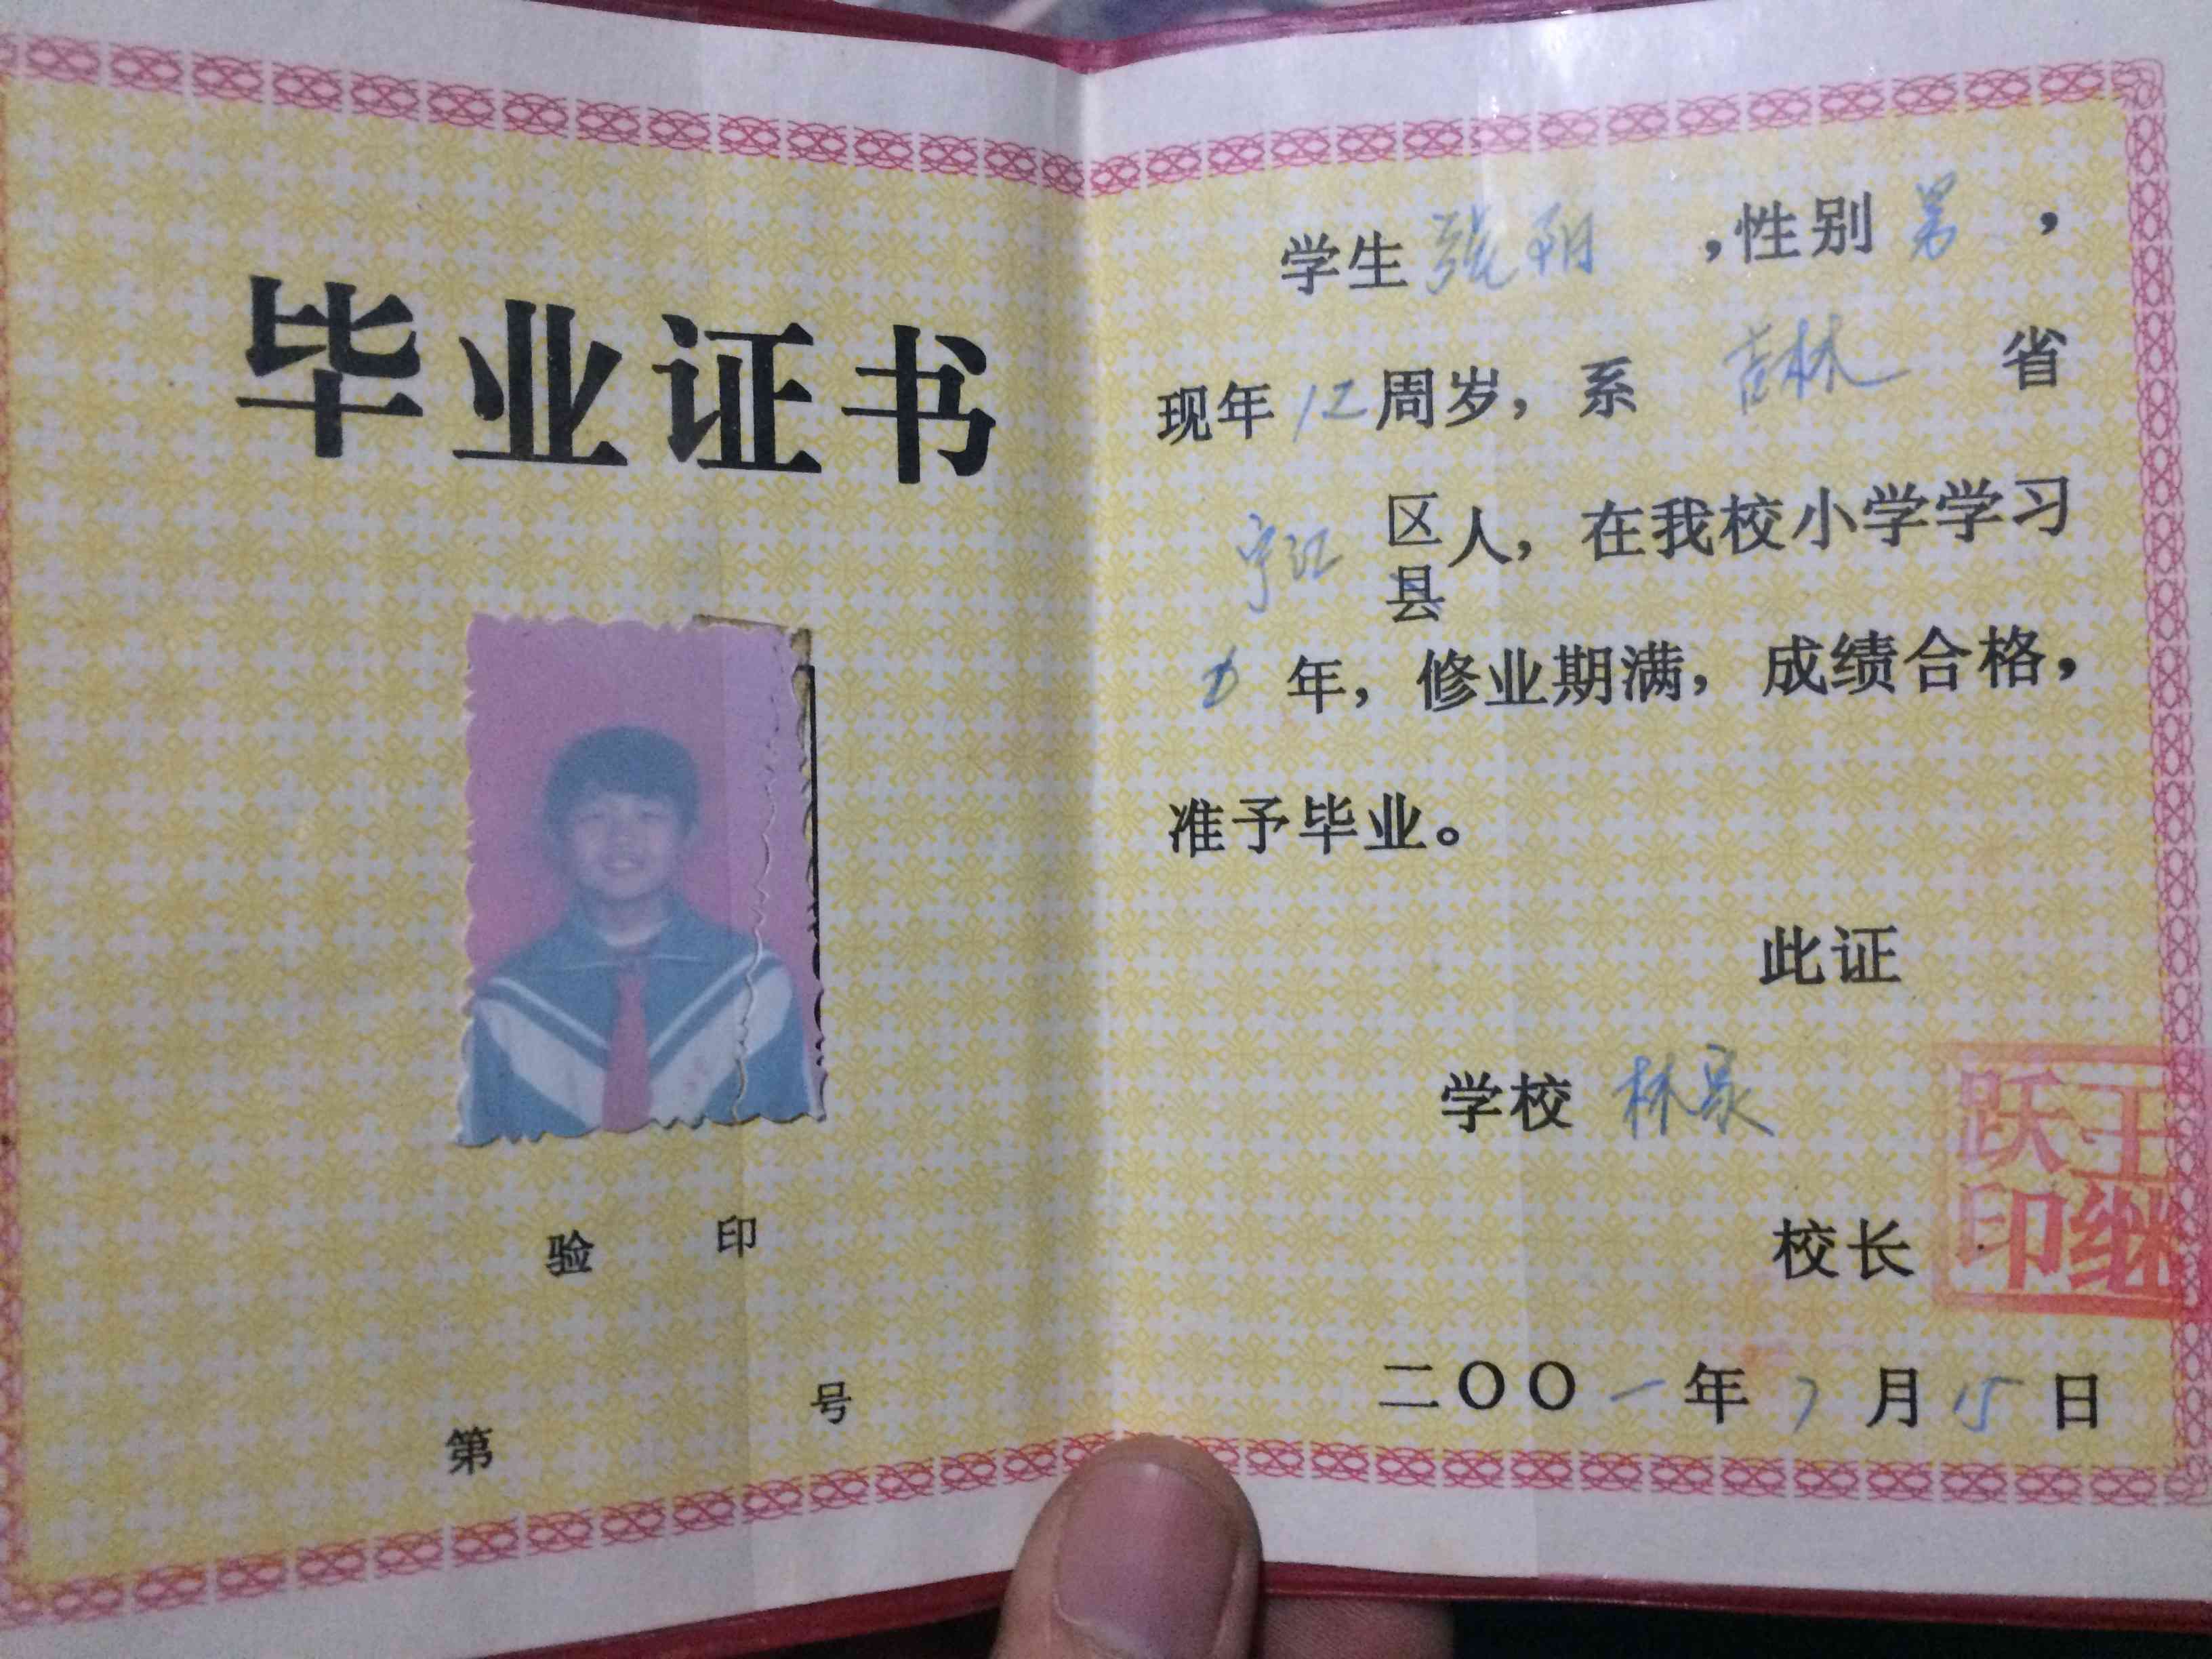 毕业证书
验 印
第 号
学生 张阳 ,性别 男 ,
现年 12 周岁, 系 吉林 省
宁江 区县 人, 在我校小学学习
六 年, 修业期满, 成绩合格,
准予毕业。
此证
学校 林家
校长 王继跃印
二〇〇一年 7 月 15 日